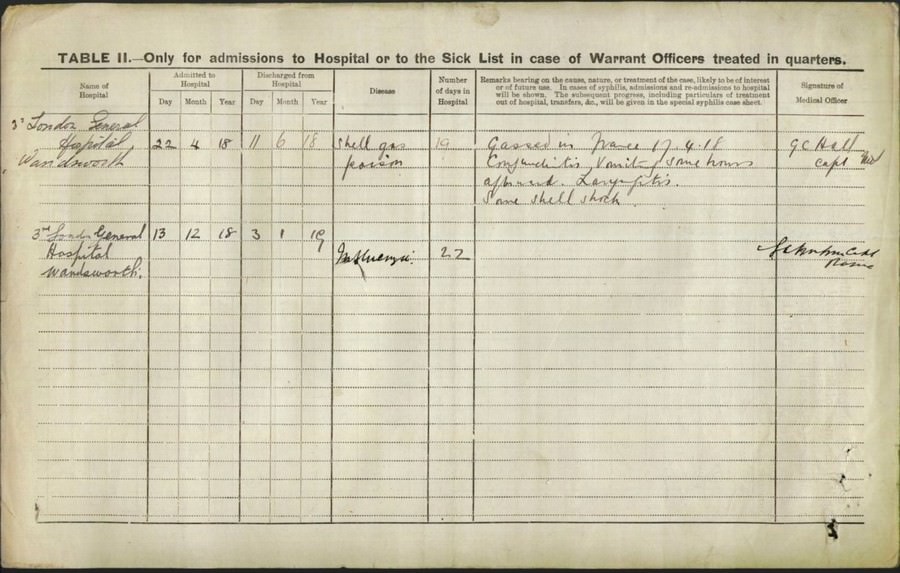 TABLE II.—Only for admissions to Hospital or to the Sick List in case of Warrant Officers treated in quarters.
Name of Hospital
Admitted to Hospital
Day Month Year
Discharged from Hospital
Day Month Year
Disease
Number of days in Hospital
Remarks bearing on the cause, nature, or treatment of the case, likely to be of interest
or of future use. In cases of syphilis, admissions and re-admissions to hospital
will be shown. The subsequent progress, including particulars of treatment
out of hospital, transfers, &c., will be given in the special syphilis case sheet.
Signature of Medical Officer
London General
Hospital 22 4 18 11 6 18 Shell gas 19 Gassed in France 17.4.18 GC Hall
Wandsworth poison Conjunctivitis Vomiting some hours Capt
afterward. Laryngitis.
Some shell shock
3rd London General 13 12 18 3 1 19
Hospital Influenza. 22
Wandsworth.